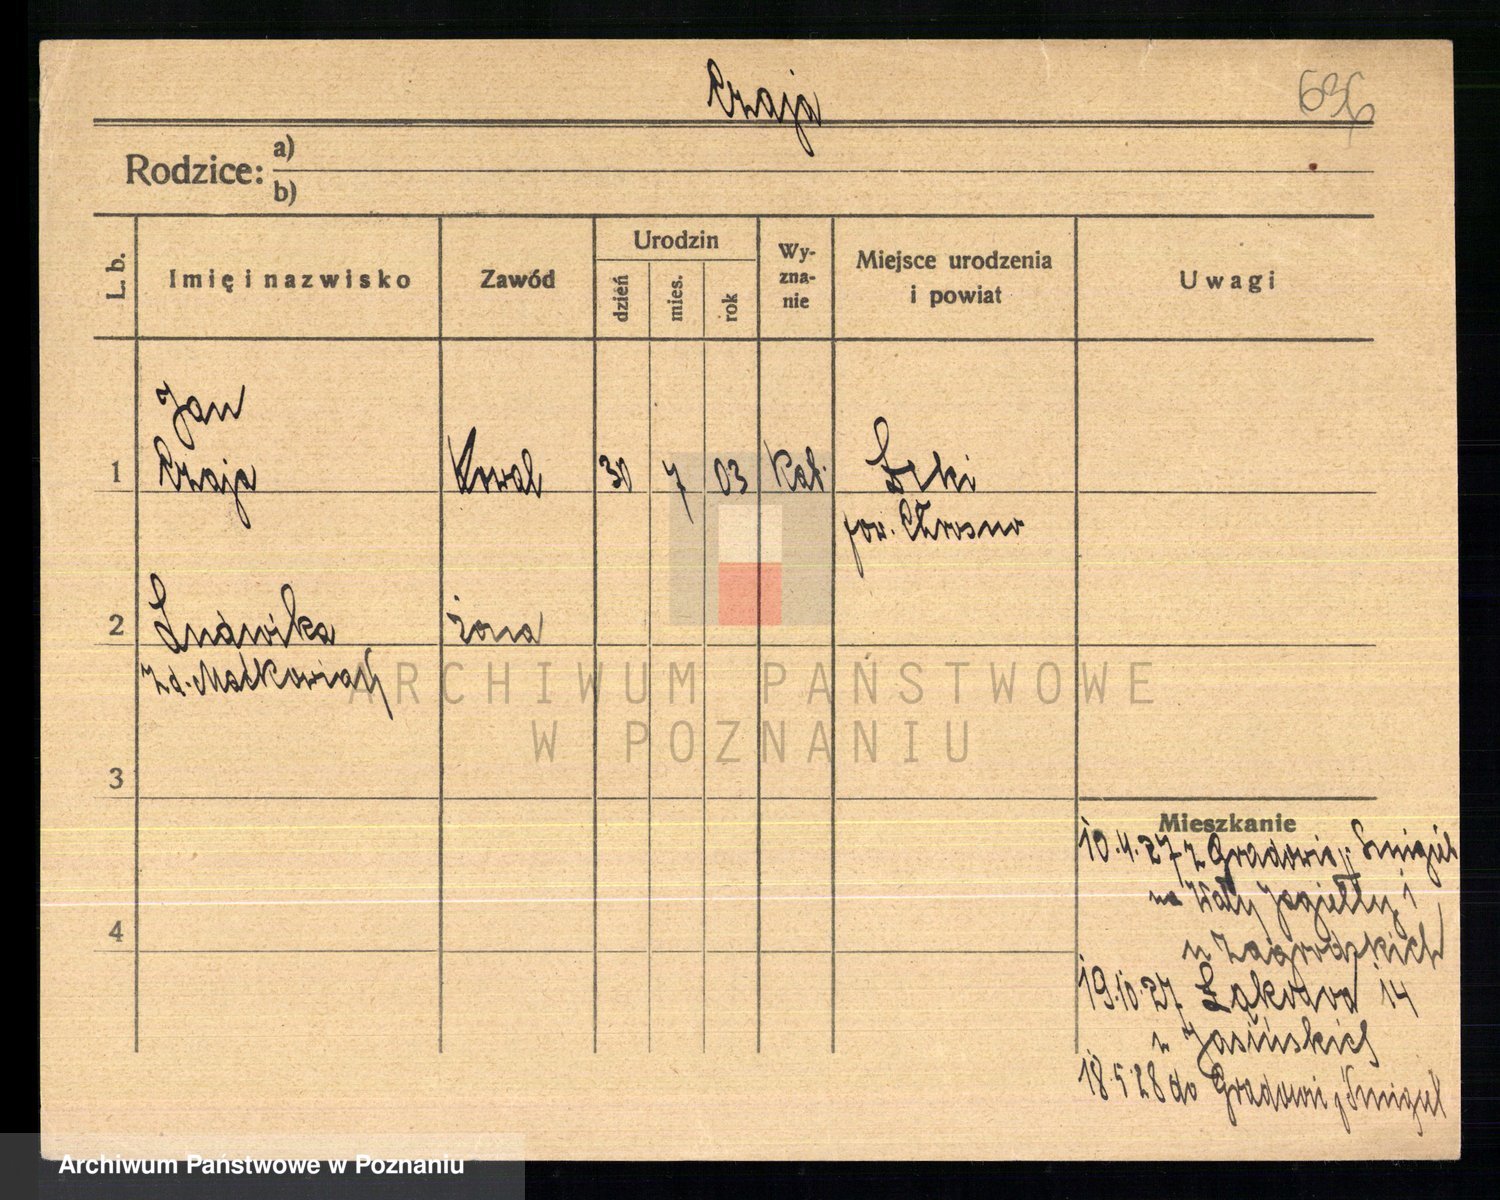 Rzaja
636
Rodzice: a)
b)
L. b.
Imię i nazwisko
Zawód
Urodzin
dzień
mies.
rok
Wy-
zna-
nie
Miejsce urodzenia
i powiat
Uwagi
Jan
1 Rzaja Kowal 30 7 03 Kat. Łęki
pow. Krosno
2 Ludwika żona
z d. Maćkowiak
3
4
Mieszkanie
10.4.27 z Gradowic, p. Śmigiel
na Wały Jagiełły 1
u Zagrodzkich
19.10.27 Łąkowa 14
u Jasińskich
18.5.28 do Gradowic, p. Śmigiel
ARCHIWUM PAŃSTWOWE
W POZNANIU
Archiwum Państwowe w Poznaniu